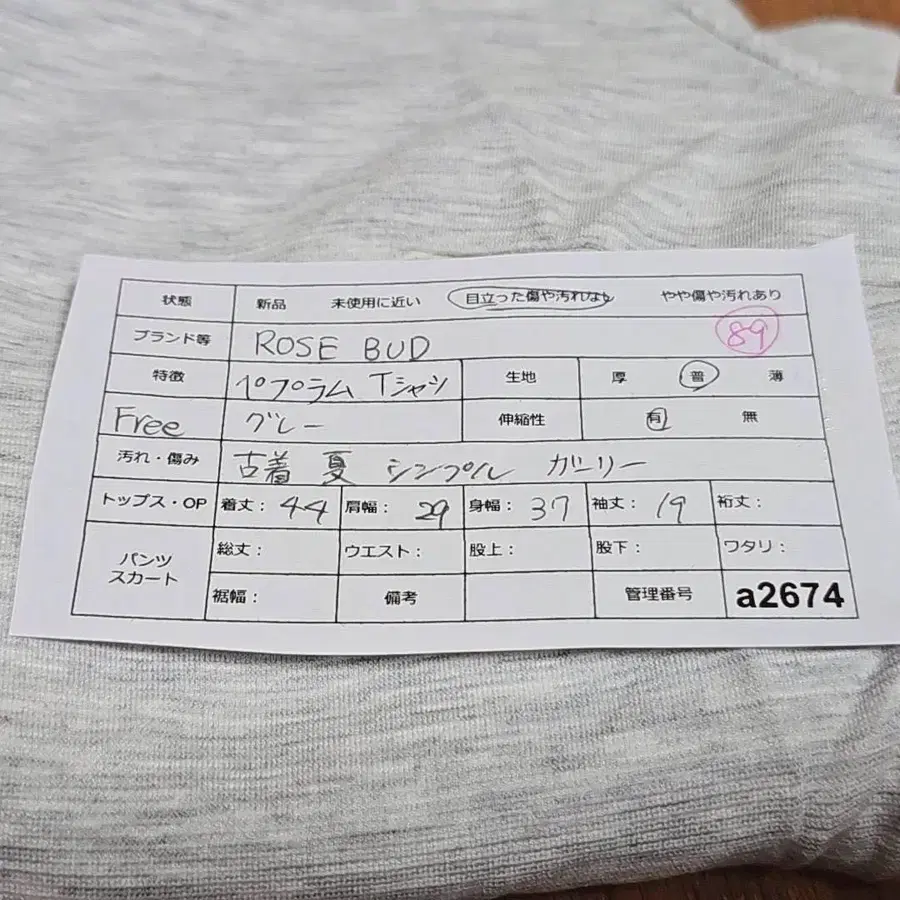 状態 新品 未使用に近い 目立った傷や汚れなし やや傷や汚れあり
ブランド等 ROSE BUD 89
特徴 ペプラム Tシャツ 生地 厚 普 薄
Free グレー 伸縮性 有 無
汚れ・傷み 古着 夏 シンプル ガーリー
トップス・OP 着丈: 44 肩幅: 29 身幅: 37 袖丈: 19 裄丈:
パンツ スカート 総丈: ウエスト: 股上: 股下: ワタリ:
裾幅: 備考 管理番号 a2674